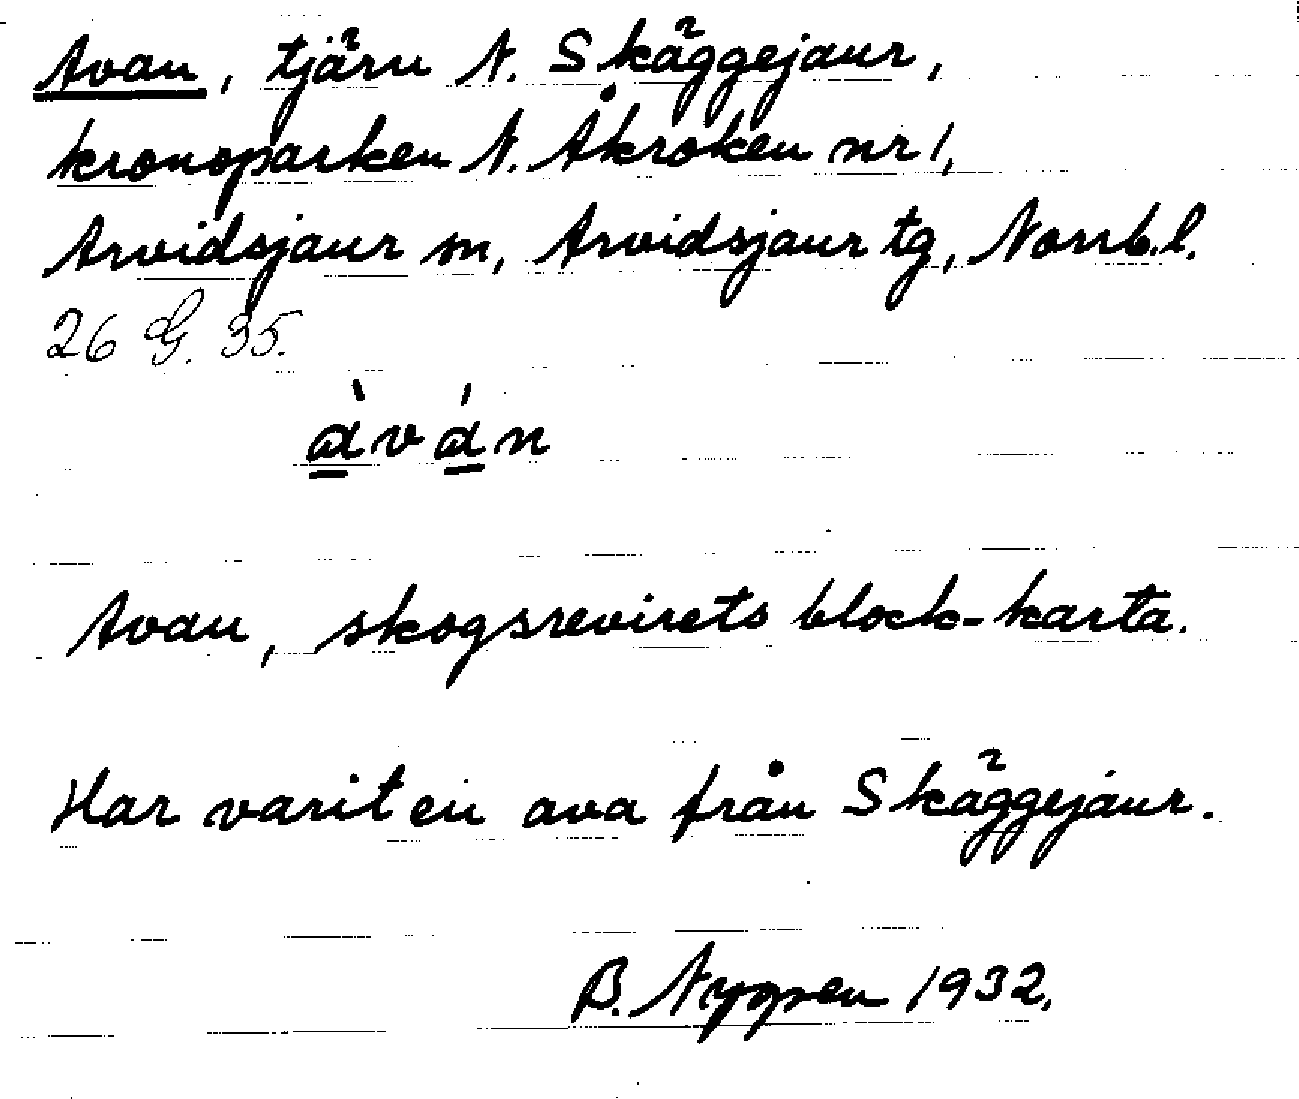 Avan, tjärn N. Skäggejaur,
kronoparken N. Åkroken nr 1,
Arvidsjaur sn, Arvidsjaur tg, Norrb.l.
26 G. 35.
àván
Avan, skogsrevirets block-karta.
Har varit en ava från Skäggejaur.
B. Nygren 1932.